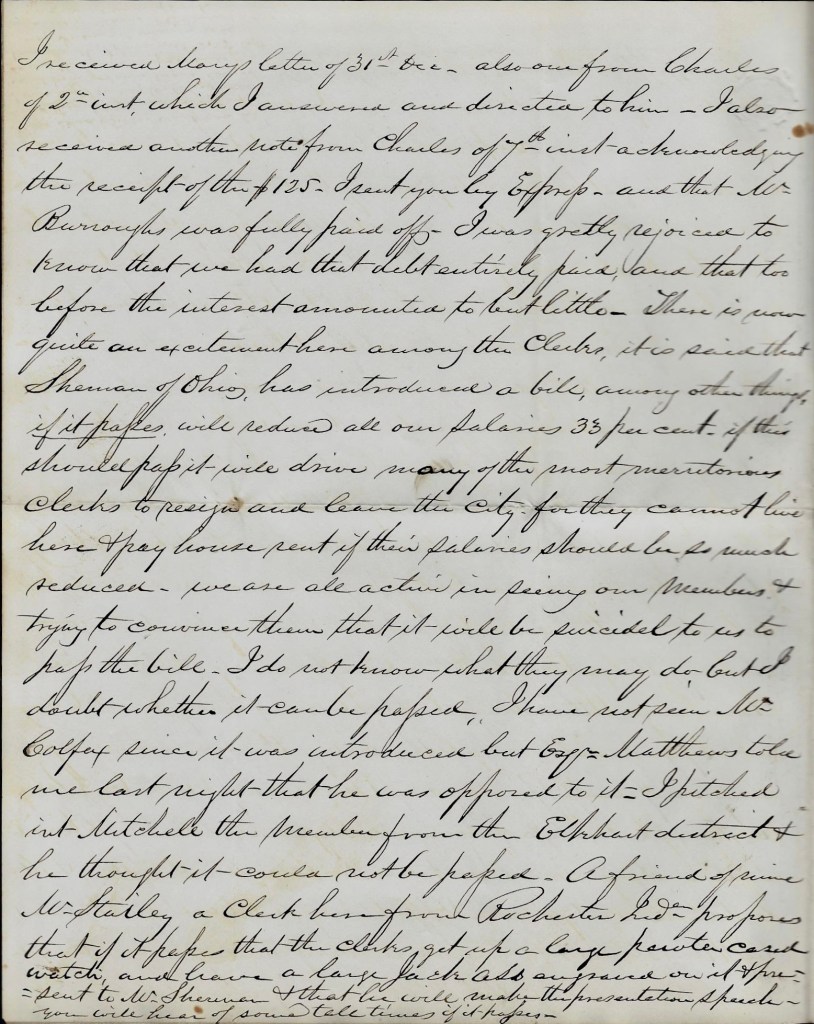 I received Marys letter of 31st Dec - also one from Charles
of 2nd inst, which I answered and directed to him - I also
received another note from Charles of 7th inst acknowledging
the receipt of the $125 - I sent you by Express - and that Mr
Burroughs was fully paid off - I was gretly rejoiced to
know that we had that debt entirely paid, and that too
before the interest amounted to but little - There is now
quite an excitement here among the Clerks, it is said that
Sherman of Ohio, has introduced a bill, among other things,
if it passes, will reduce all our salaries 33 per cent - if this
should pass it will drive many of the most merritorious
clerks to resign and leave the city for they cannot live
here & pay house rent if their salaries should be so much
reduced - we are all active in seeing our Members &
trying to convince them that it will be suicidel to us to
pass the bill - I do not know what they may do but I
doubt whether it can be passed, I have not seen Mr
Colfax since it was introduced but Esqr Matthews told
me last night that he was opposed to it = I pitched
int Mitchell the Member from the Elkhart district &
he thought it could not be passed - A friend of mine
Mr Stailey a Clerk here from Rochester Inda proposes
that if it passes that the clerks, get up a large pewter cased
watch, and have a large Jack ass engraved on it & pre=
=sent to Mr Sherman & that he will make the presentation speech -
you will hear of some tall times if it passes -